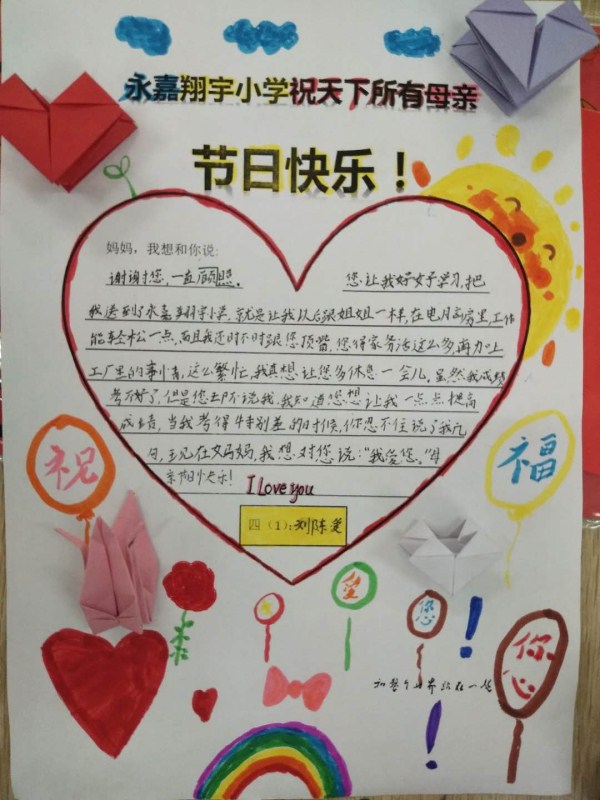 永嘉翔宇小学祝天下所有母亲
节日快乐！
妈妈，我想和你说：
谢谢您，一直照顾。
您让我好好学习，把
我送到了永嘉翔宇小学，就是让我以后跟姐姐一样，在电月房里工作
能轻松一点，而且我还时不时跟您顶嘴，您得家务活这么多再加上
工厂里的事情，这么繁忙，我真想让您多休息一会儿，虽然我成绩
考不好了，但是您去不说我，我知道您想让我一点点提高
成绩，当我考得特别差的时候，你忍不住说了我几
句，现在妈妈，我想对您说：“我爱您。”母
亲节快乐！
I Love you
四（1）：刘陈
祝
福
爱
您
！
你
心
！